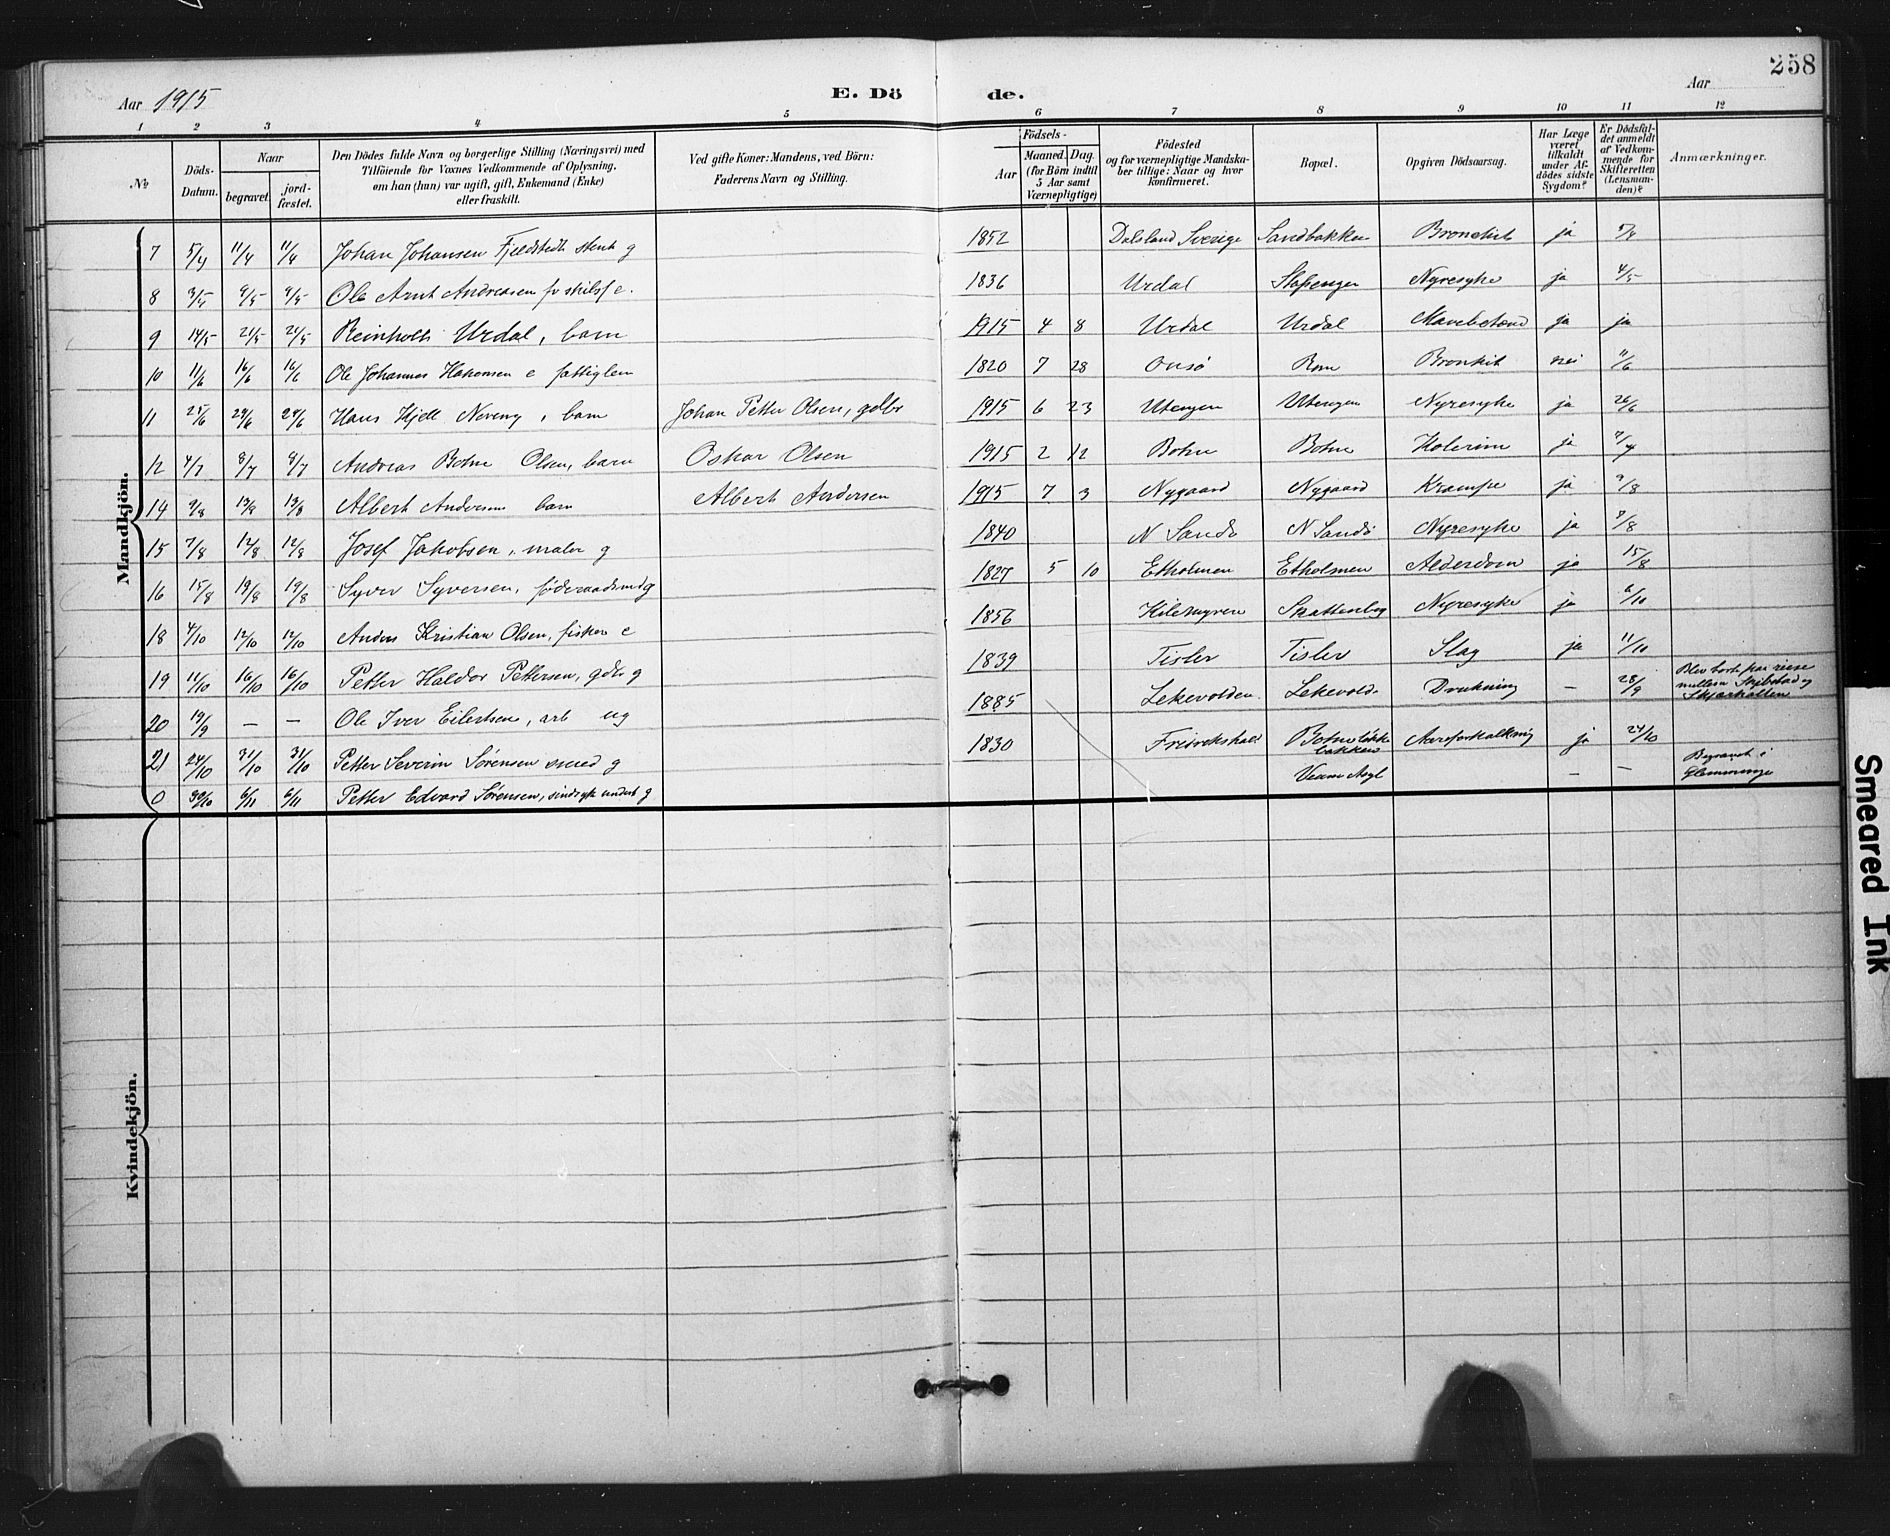 258
Aar 1915 E. Dö de. Aar
1 2 3 4 5 6 7 8 9 10 11 12
No
Döds-Datum.
Naar
begravet.
jord-fæstet.
Den Dödes fulde Navn og borgerlige Stilling (Næringsvei) med
Tilföiende for Voxnes Vedkommende af Oplysning,
om han (hun) var ugift, gift, Enkemand (Enke)
eller fraskilt.
Ved gifte Koner: Mandens, ved Börn:
Faderens Navn og Stilling.
Födsels-
Aar
Maaned. Dag.
(for Börn indtil
5 Aar samt
Værnepligtige)
Födested
og for værnepligtige Mandska-
ber tillige: Naar og hvor
konfirmeret.
Bopæl.
Opgiven Dödsaarsag.
Har Læge
været
tilkaldt
under Af-
dödes sidste
Sygdom?
Er Dödsfal-
det anmeldt
af Vedkom-
mende for
Skifteretten
(Lensman-
den)?
Anmærkninger.
Mandkjön.
7 5/4 11/4 11/4 Johan Johansen Fjeldstedt stenh g 1852 Dalsland Sverige Sandbakken Bronckit ja 5/4
8 3/5 9/5 9/5 Ole Arnt Andreasen e. 1836 Urdal Nyresyke ja 4/5
9 14/5 21/5 21/5 Reinholt Urdal, barn 1915 4 8 Urdal Urdal ja ja
10 11/6 16/6 16/6 Ole Johannes Hakonsen e fattiglem 1820 7 28 Onsö Rom Bronkit nei 11/6
11 25/6 29/6 29/6 Hans Kjell barn Johan Petter Olsen, gdbr 1915 6 23 Utengen Utengen Nyresyke ja 26/6
12 4/7 8/7 8/7 Andreas Botne Olsen, barn Oskar Olsen 1915 2 12 Botne Botne Kolerine ja
14 9/8 13/8 13/8 Albert Andersen barn Albert Andersen 1915 7 3 Nygaard Nygaard Krampe ja 9/8
15 7/8 12/8 12/8 Josef Jakobsen, maler g 1840 N Sandö N Sandö Nyresyke ja 7/8
16 15/8 19/8 19/8 Syver Syversen, föderaadsmd g 1827 5 10 Etholmen Etholmen Alderdom ja 15/8
18 4/10 12/10 12/10 Anders Kristian Olsen, fisker e 1856 Kilemyren Skattenbog Nyresyke ja 6/10
19 11/10 16/10 16/10 Petter Haldor Pettersen, gdbr g 1839 Tisler Tisler Slag ja 11/10
20 19/9 — — Ole Iver Eilertsen, arb ug 1885 Lekevolden Lekevold Drukning — 28/9 Blev borte paa reise
mellem og
Skjærhallen
21 24/10 31/10 31/10 Petter Severin Sørensen smed g 1830 Fredrikshald Botne løkke
bakken Aareforkalkning ja 24/10
0 30/10 6/11 6/11 Petter Edvard Sørensen, sindsyk underst g Veum Asyl — — Begravet i
Glemminge
Kvindekjön.
Smeared Ink